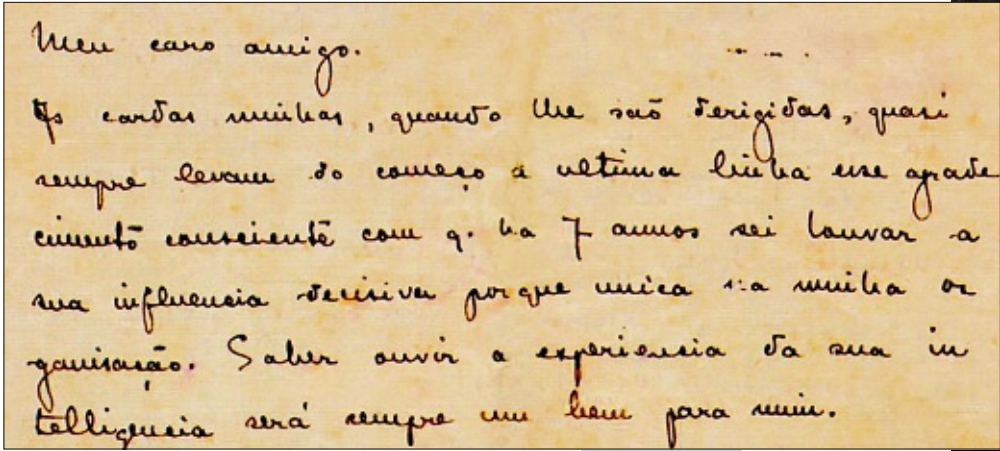 Meu caro amigo.
As cartas minhas, quando lhe são derigidas, quasi
sempre levam do começo a ultima linha esse agrade
cimento consciente com q. ha 7 annos sei louvar a
sua influencia decisiva porque unica na minha or
ganisação. Saber ouvir a experiencia da sua in
telligencia será sempre um bem para mim.